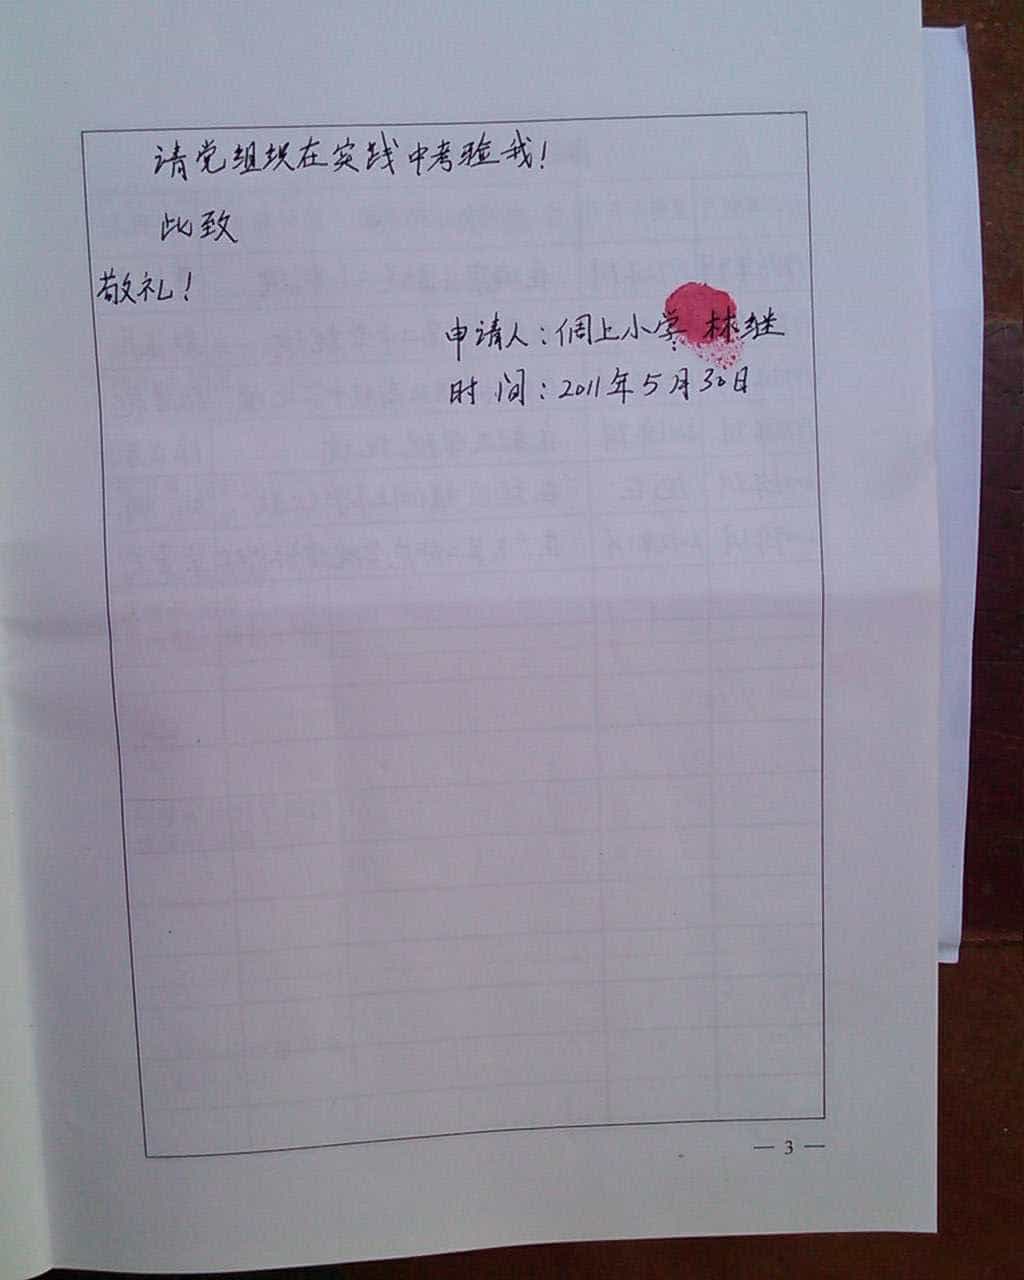 请党组织在实践中考验我!
此致
敬礼!
申请人:倜上小学 林继
时间:2011年5月30日
— 3 —